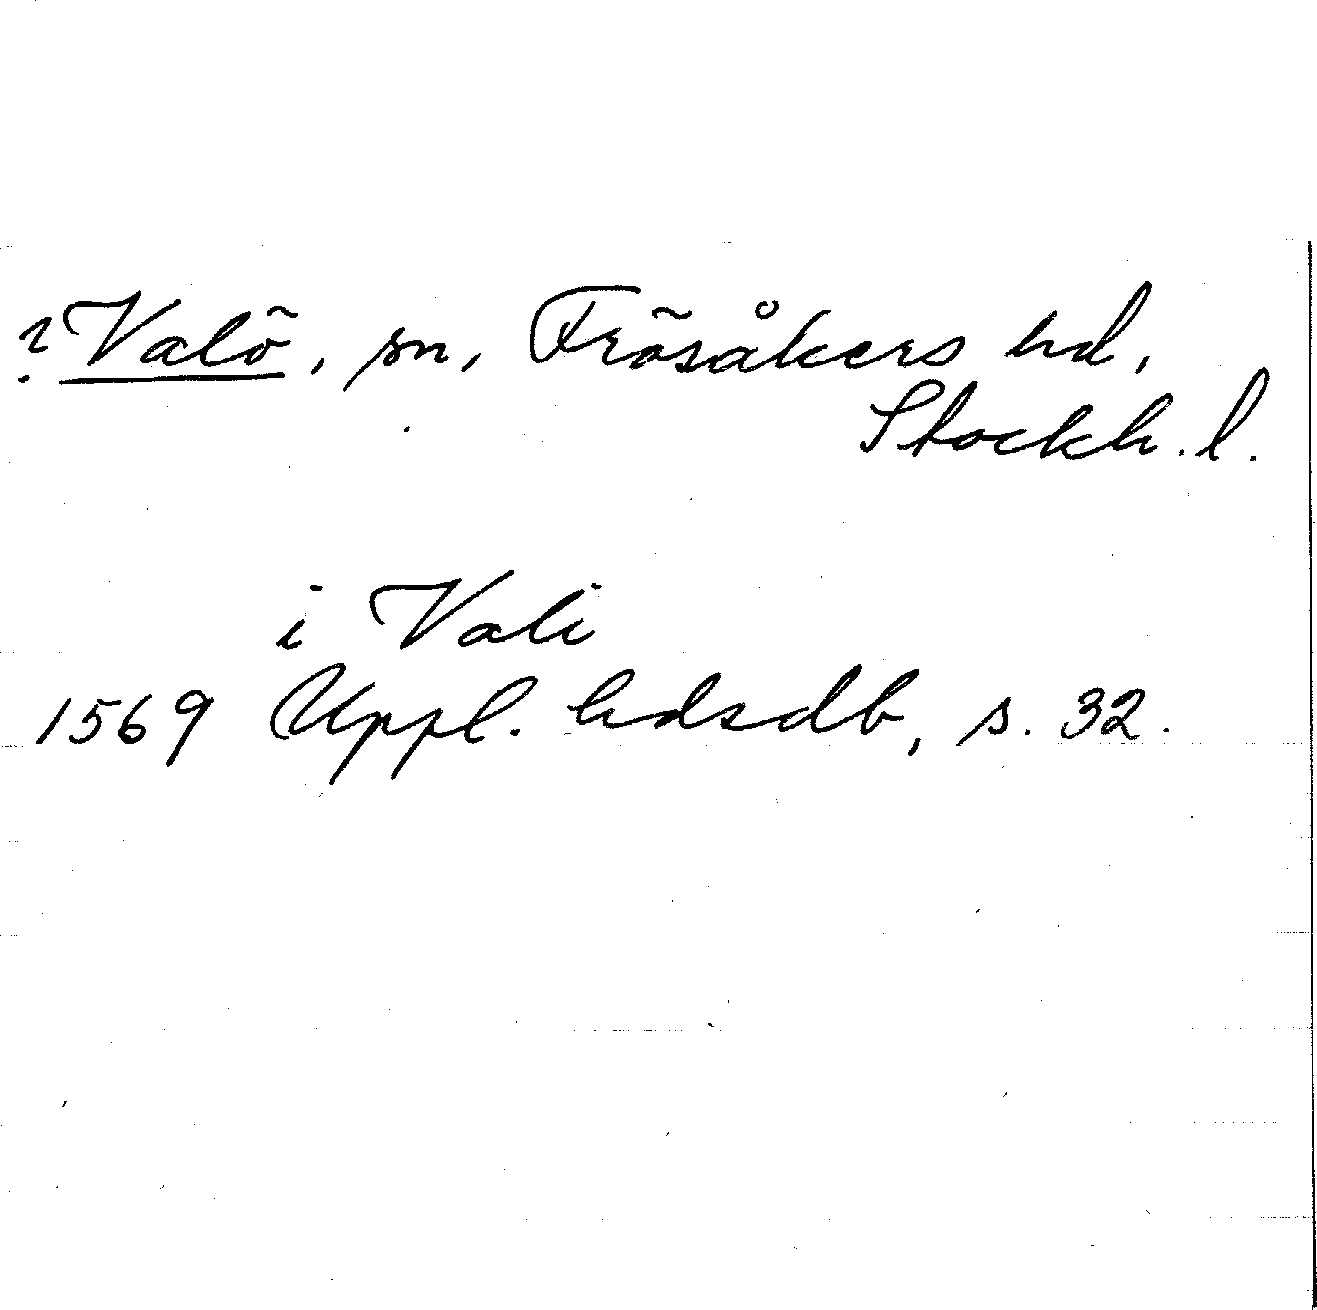 ? Valö, sn, Frösåkers hd,
Stockh. l.
i Vali
1569 Uppl. hdsdb, s. 32.